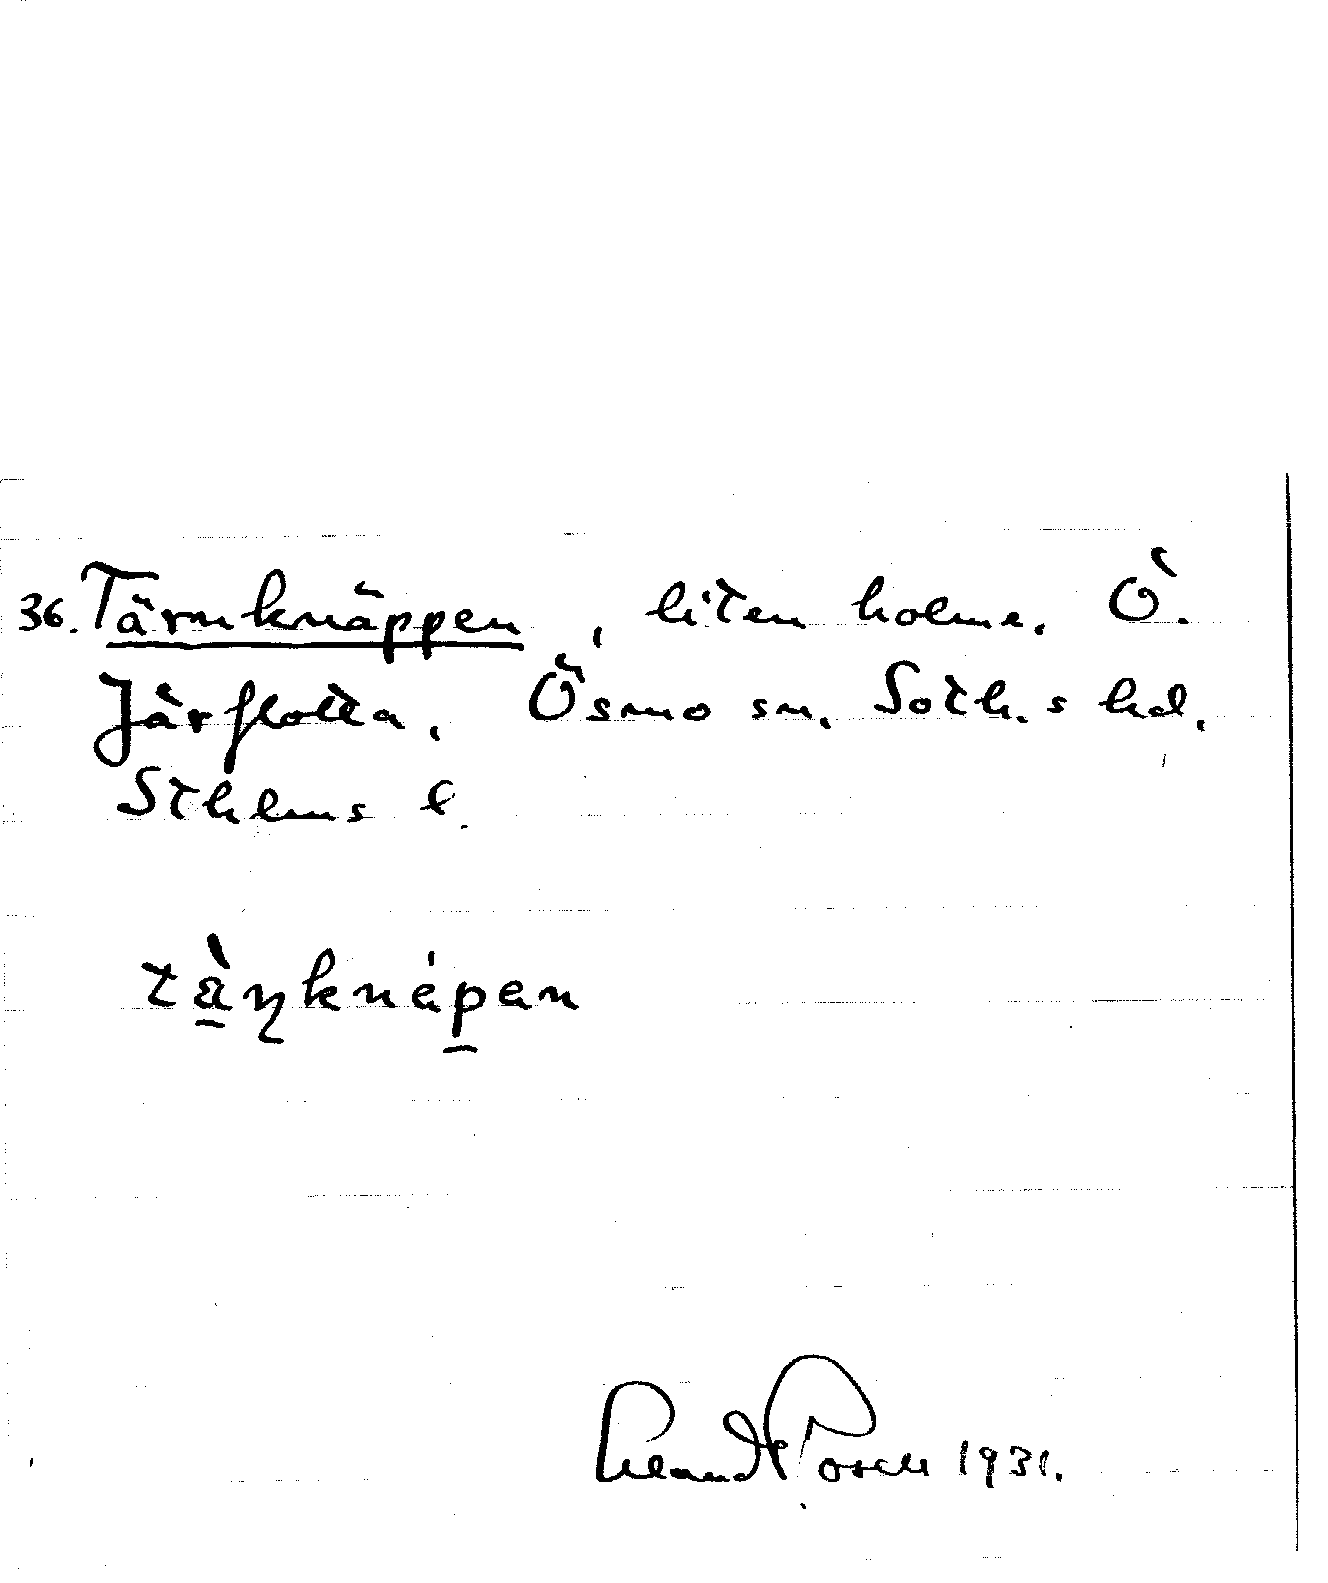 36. Tärnknäppen, liten holme. Ö.
Järflotta, Ösmo sn. Soth.s hd.
Sthlms l.
tä̀ɳknépen
Posse 1931.